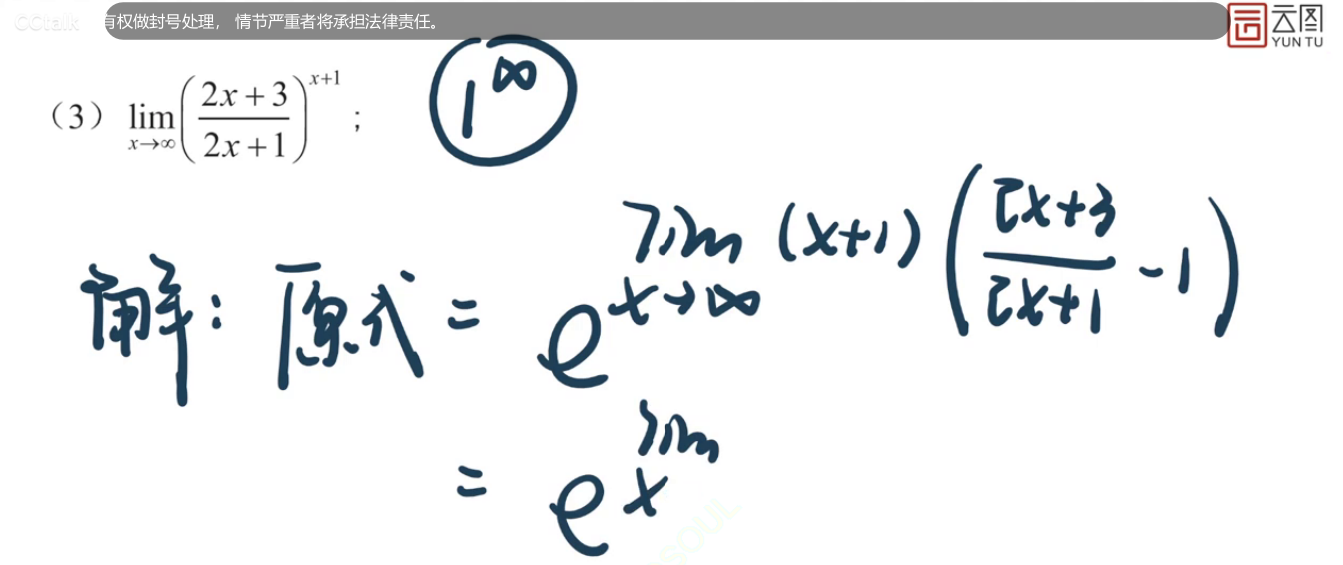 CCtalk 有权做封号处理， 情节严重者将承担法律责任。
云图
YUN TU
（3） lim x→∞ ( (2x+3)/(2x+1) )^(x+1) ；
1^∞
解：原式 = e^( lim x→∞ (x+1) ( (2x+3)/(2x+1) - 1 ) )
= e^( lim x
SOUL